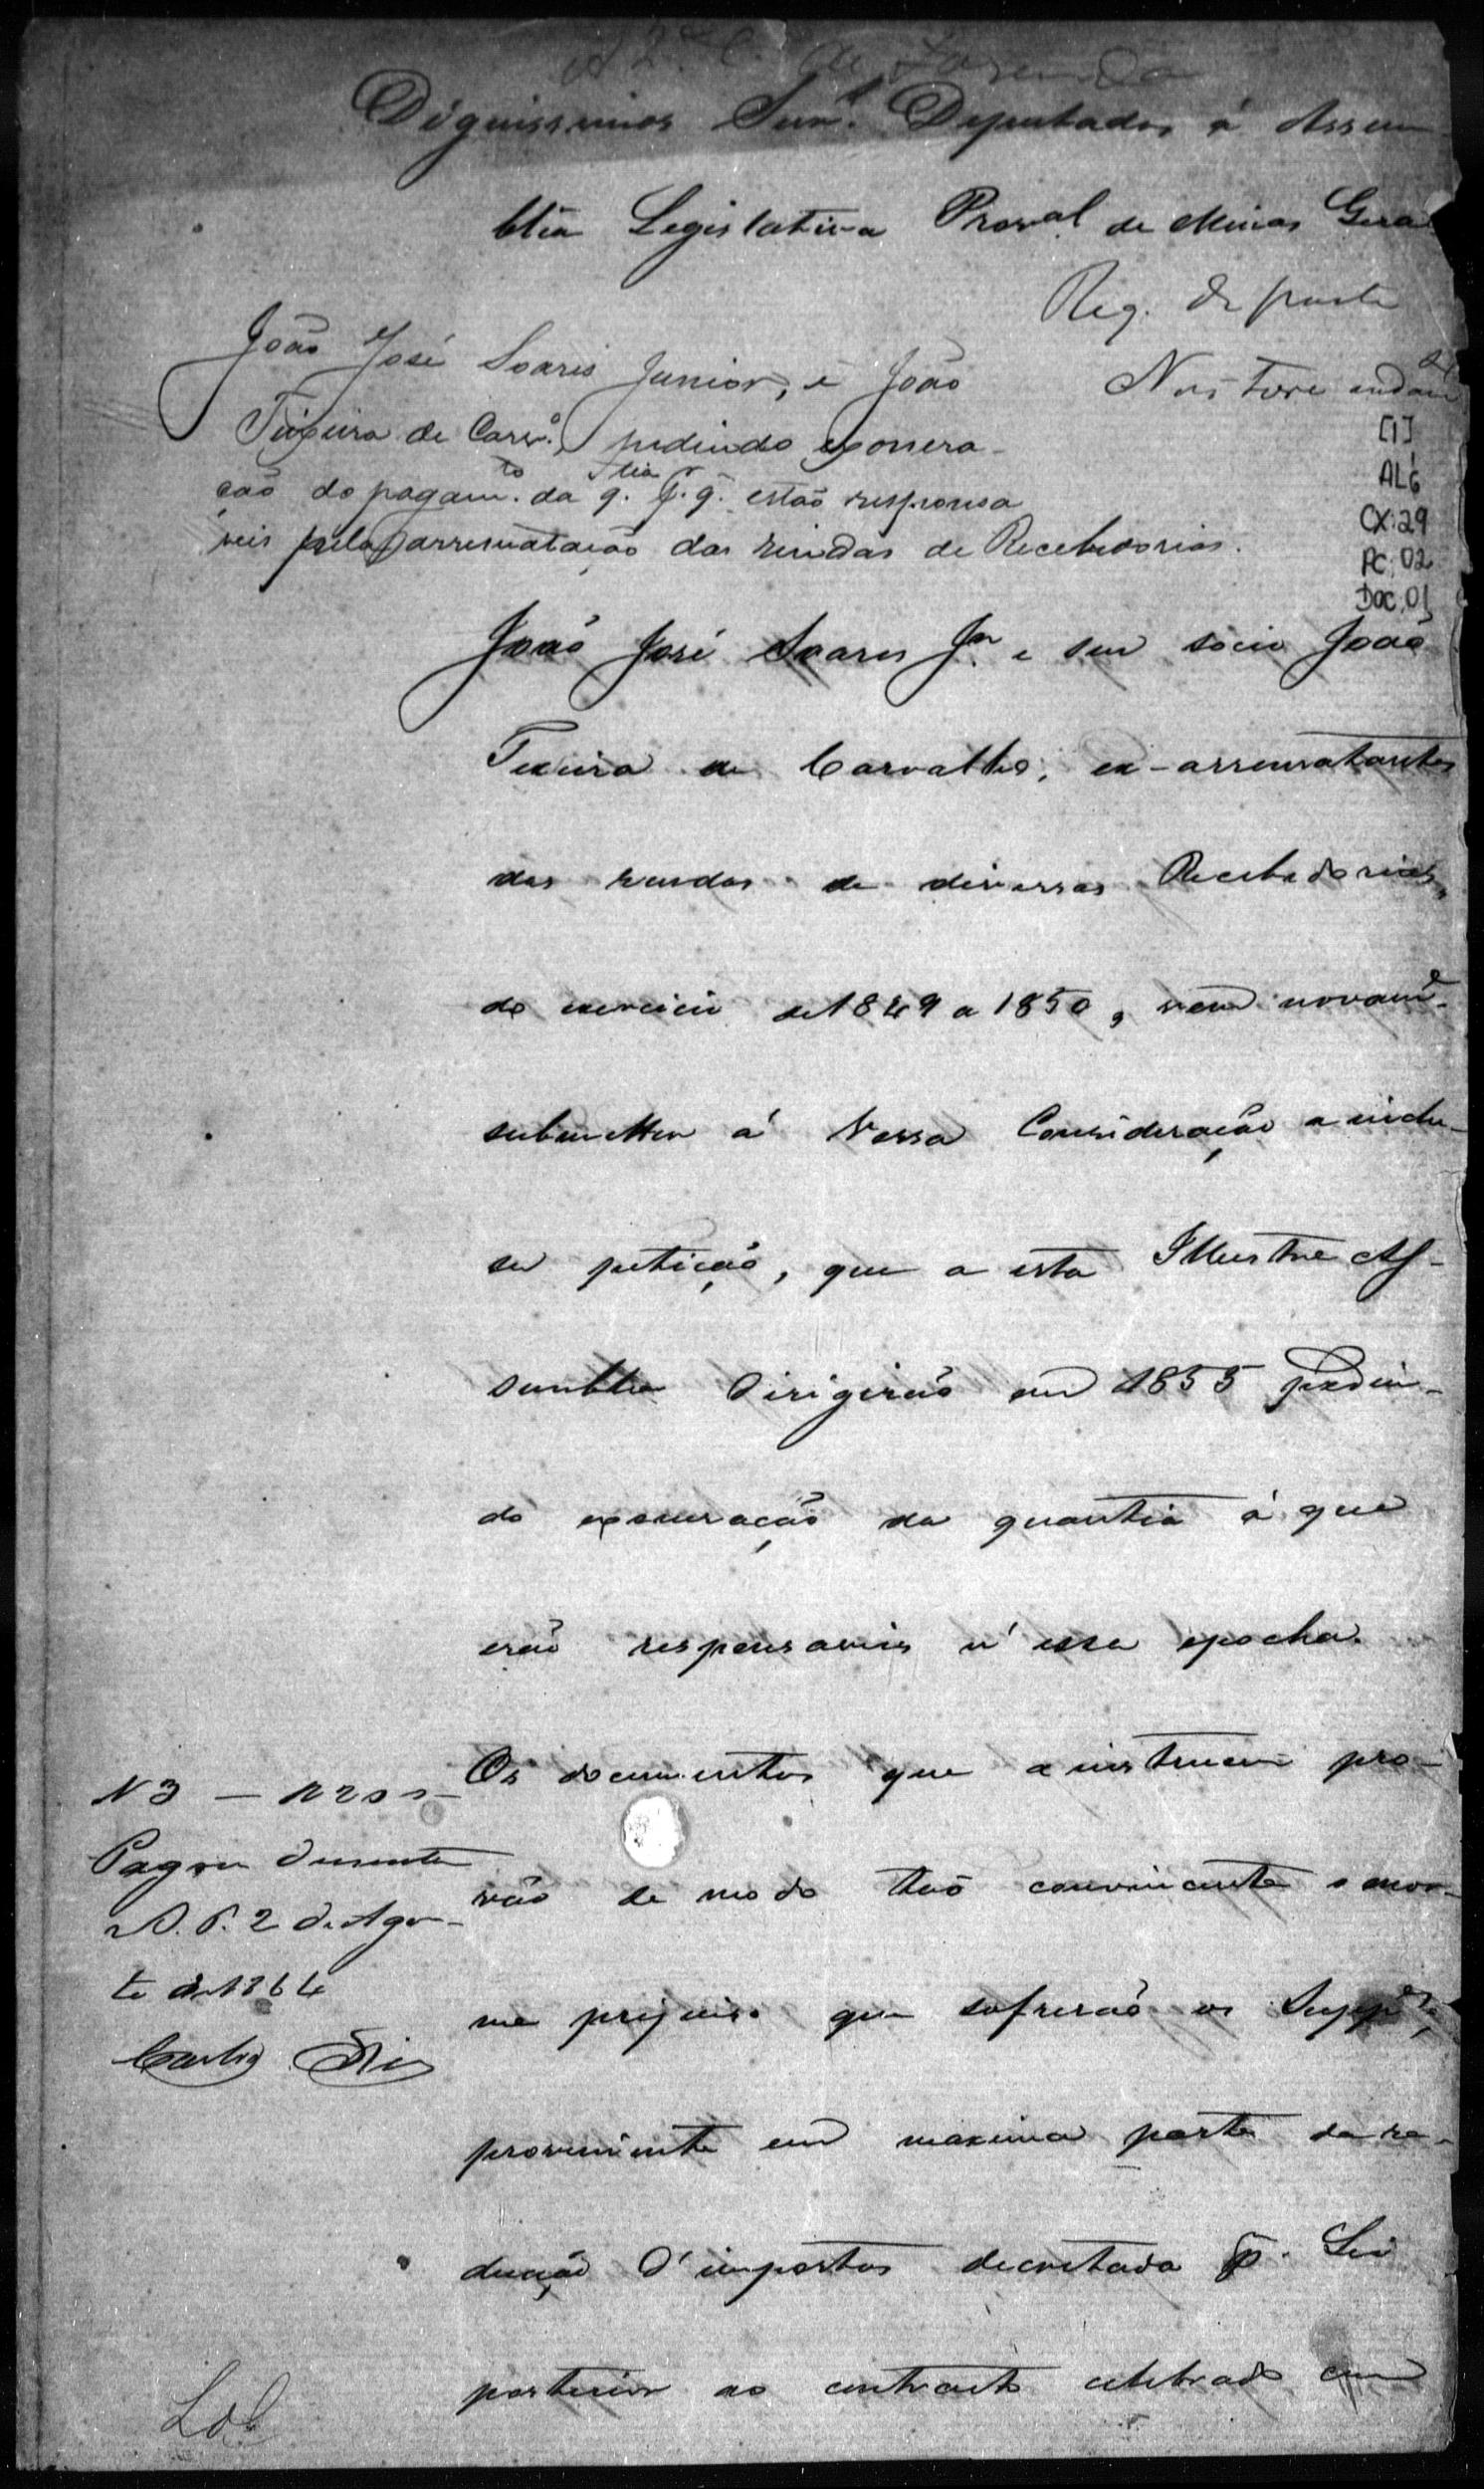 A 2ª C. de Fazenda
Dignissimos Snr.es Deputados á Assem
bléa Legislativa Prov.al de Minas Gera
Req. de parte
João José Soares Junior, e João
Teixeira de Carv.o, pedindo exonera-
ção do pagam.to da q.tia p.r q. estão responsa
veis pela arrematação das rendas de Recebedorias.
Não teve andam
[1]
AL6
CX:29
PC:02
Doc:01
João José Soares J.or e seu socio João
Teixeira de Carvalho, ex-arrematantes
das rendas de diversas Recebedorias,
do exercicio de 1849 a 1850, vem novam.e
submetter á Vossa Consideração a inclu-
sa petição, que a esta Illustre As-
semblea dirigirão em 1855 pedin-
do exoneração da quantia á que
erão responsaveis n'essa epocha.
Os documentos que a instruem pro-
vão de modo tão convincente o enor-
me prejuiso que sofrerão os Supp.es,
proveniente em maxima parte da re-
ducção d'impostos decretada p.r Lei
posterior ao contracto celebrado com
N 3 — R 200
Pagou dusentos
O. P. 2 de Agos-
to de 1864